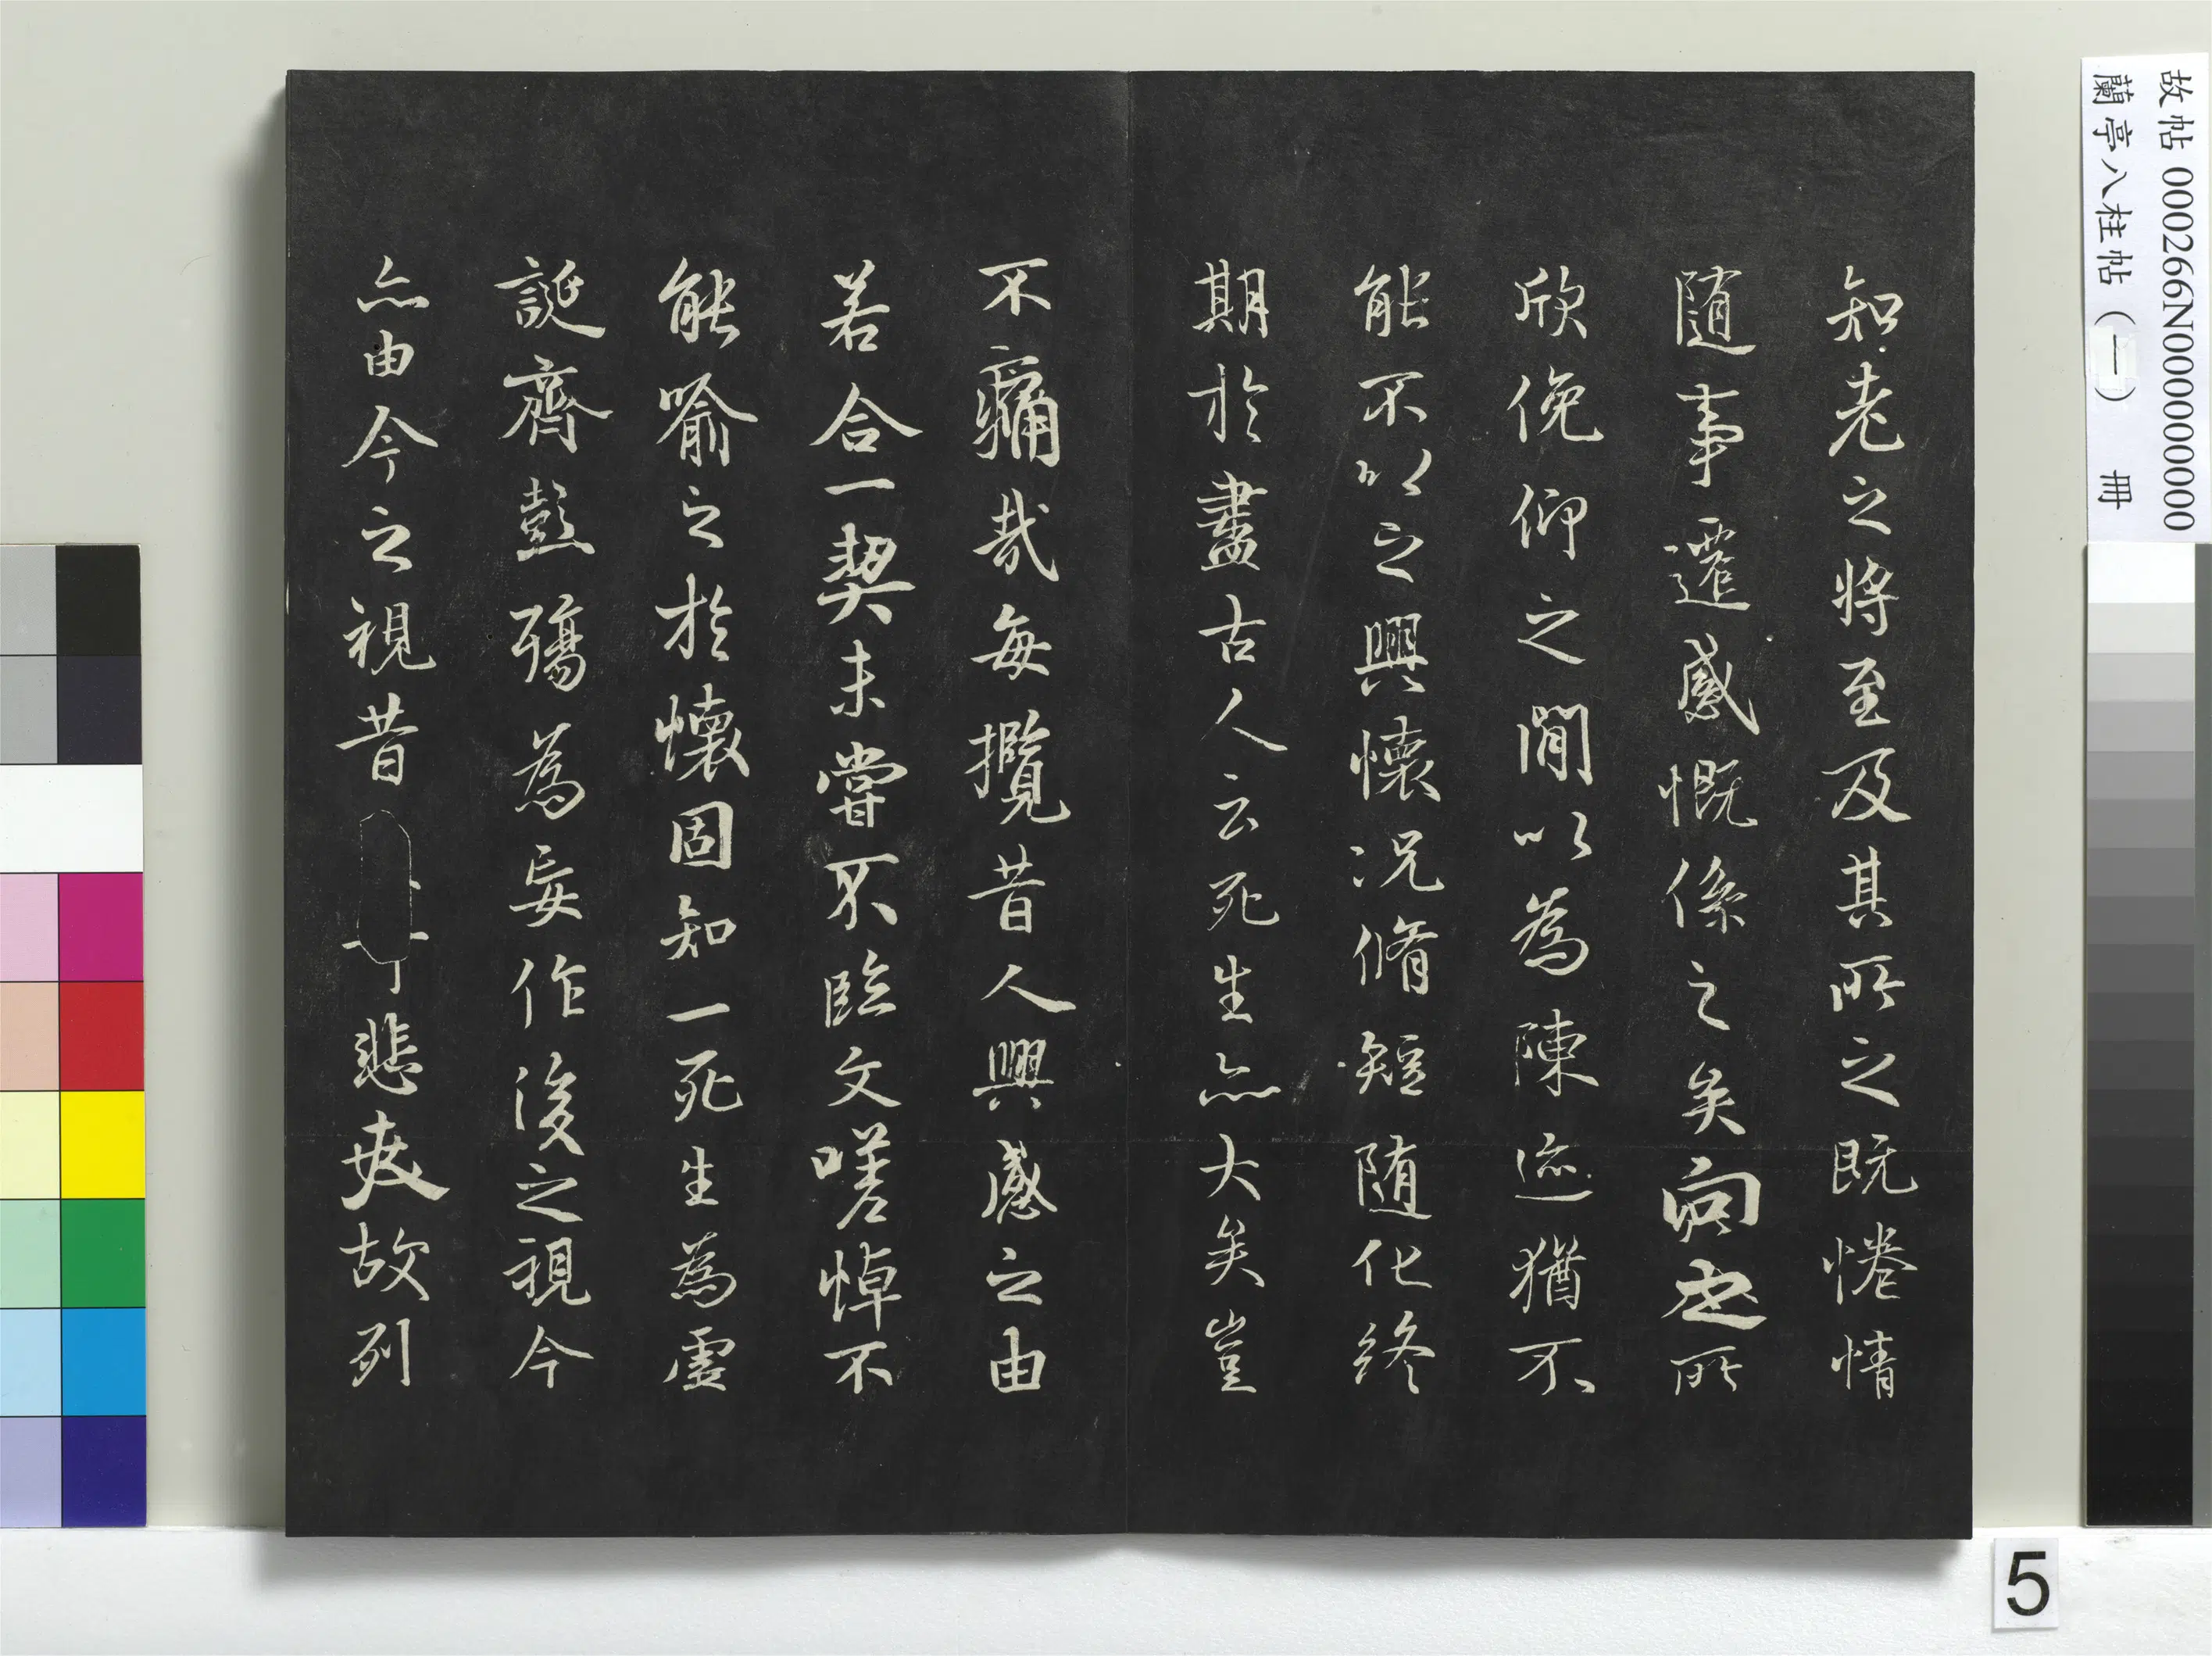 知老之將至及其所之既惓情
随事遷感慨係之矣向之所
欣俛仰之閒以為陳迹猶不
能不以之興懷況脩短随化終
期於盡古人云死生亦大矣豈
不痛哉每攬昔人興感之由
若合一契未嘗不臨文嗟悼不
能喻之於懷固知一死生為虛
誕齊彭殤為妄作後之視今
亦由今之視昔
悲夫故列
故帖 000266N000000000
蘭亭八柱帖（一） 冊
5